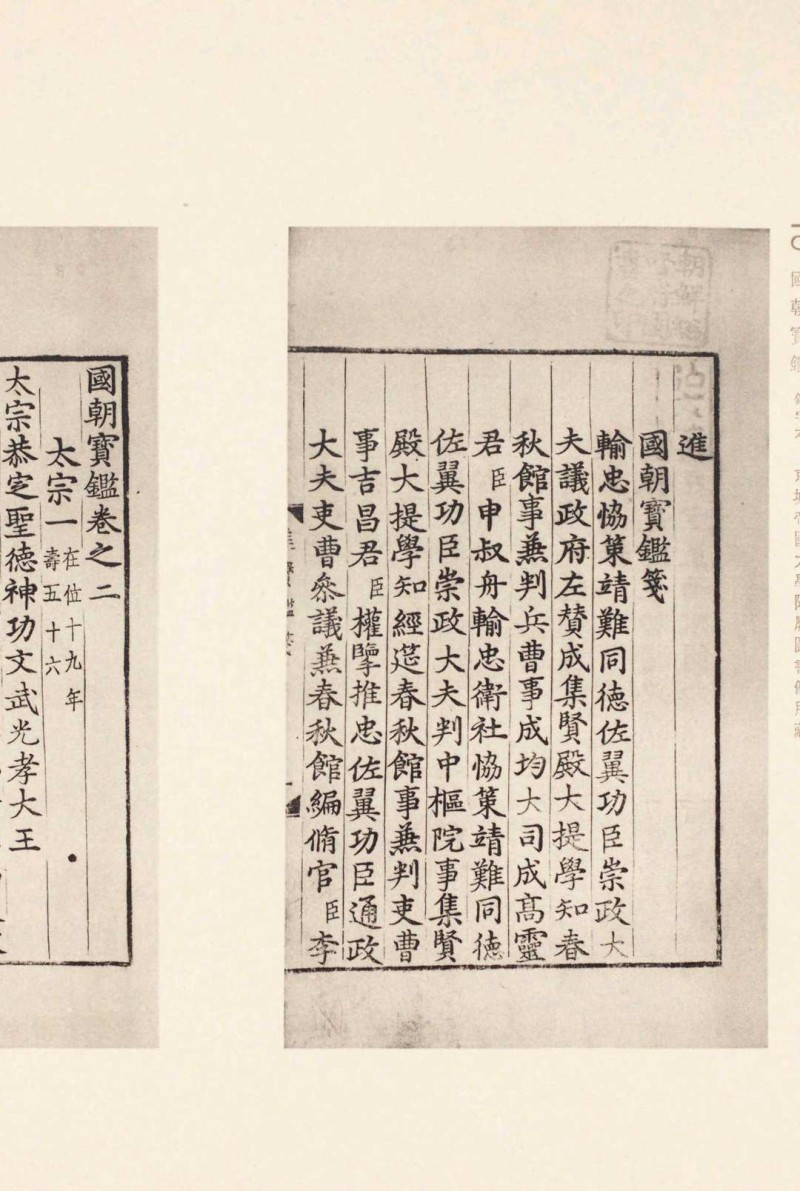 進
國朝寶鑑箋
輸忠協策靖難同徳佐翼功臣崇政大
夫議政府左賛成集賢殿大提學知春
秋館事𠔥判兵曹事成均大司成髙靈
君臣申叔舟輸忠衛社協策靖難同徳
佐翼功臣崇政大夫判中樞院事集賢
殿大提學知經筵春秋館事𠔥判吏曹
事吉昌君臣權擥推忠佐翼功臣通政
大夫吏曹叅議𠔥春秋館編脩官臣李
國朝寶鑑卷之二
太宗一
在位十九年
壽五十六
太宗恭定聖徳神功文武光孝大王
國朝寶鑑